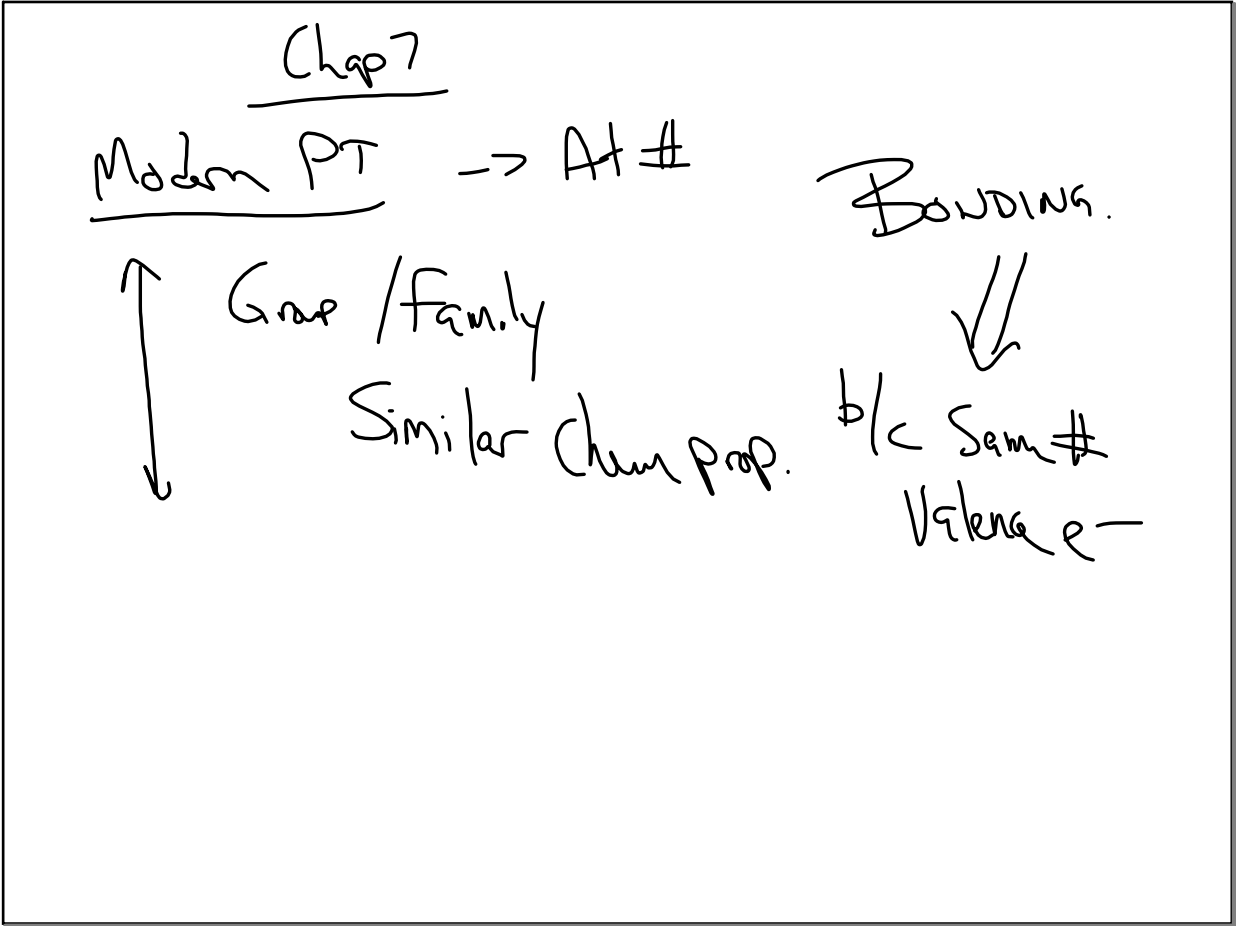 Chap 7
Modern PT -> At #
Group / Family
Similar Chem prop.
BONDING.
b/c Same #
Valence e-